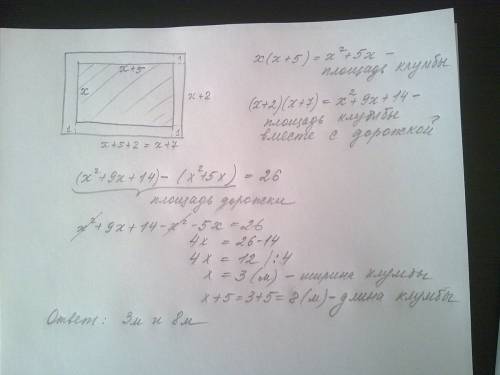 x+5
1
x
x+2
1
1
x+5+2 = x+7
x(x+5) = x²+5x –
площадь клумбы
(x+2)(x+7) = x²+9x+14 –
площадь клумбы
вместе с дорожкой
(x²+9x+14) – (x²+5x) = 26
площадь дорожки
x²+9x+14-x²-5x=26
4x = 26-14
4x = 12 /:4
x = 3 (м) – ширина клумбы
x+5=3+5=8 (м) – длина клумбы
Ответ: 3м и 8м